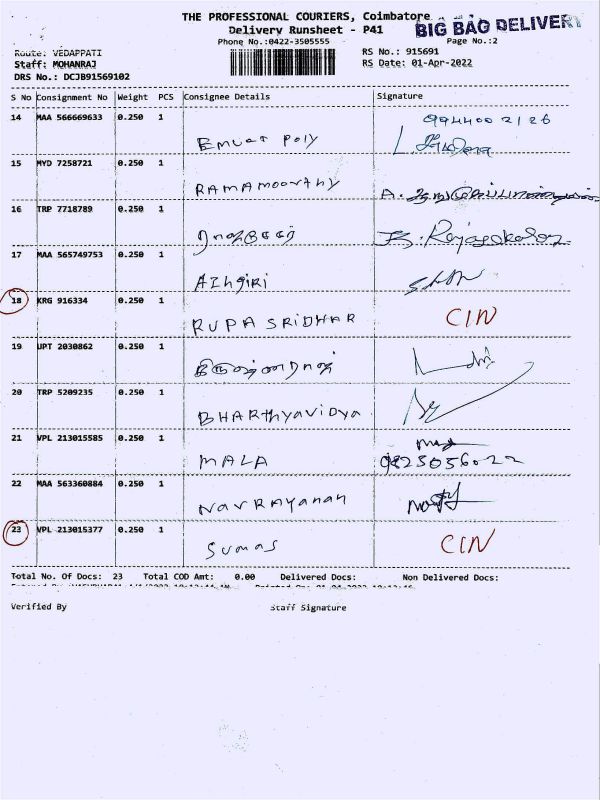 THE PROFESSIONAL COURIERS, Coimbatore
BIG BAG DELIVERY
Delivery Runsheet - P41
Phone No.:0422-3505555 Page No.:2
Route: VEDAPPATI RS No.: 915691
Staff: MOHANRAJ RS Date: 01-Apr-2022
DRS No.: DCJB91569102
S No Consignment No Weight PCS Consignee Details Signature
14 MAA 566669633 0.250 1 9944002126
Poly
15 MYD 7258721 0.250 1
RAMAMOORTHY
16 TRP 7718789 0.250 1
17 MAA 565749753 0.250 1
AZhgiRi
18 KRG 916334 0.250 1
RUPA SRIDHAR CIN
19 UPT 2030862 0.250 1
20 TRP 5209235 0.250 1
BHARthyAViDya
21 VPL 213015585 0.250 1
MALA
22 MAA 563360884 0.250 1
NavRAyanan
23 VPL 213015377 0.250 1
Sumas CIN
Total No. Of Docs: 23 Total COD Amt: 0.00 Delivered Docs: Non Delivered Docs:
Verified By Staff Signature